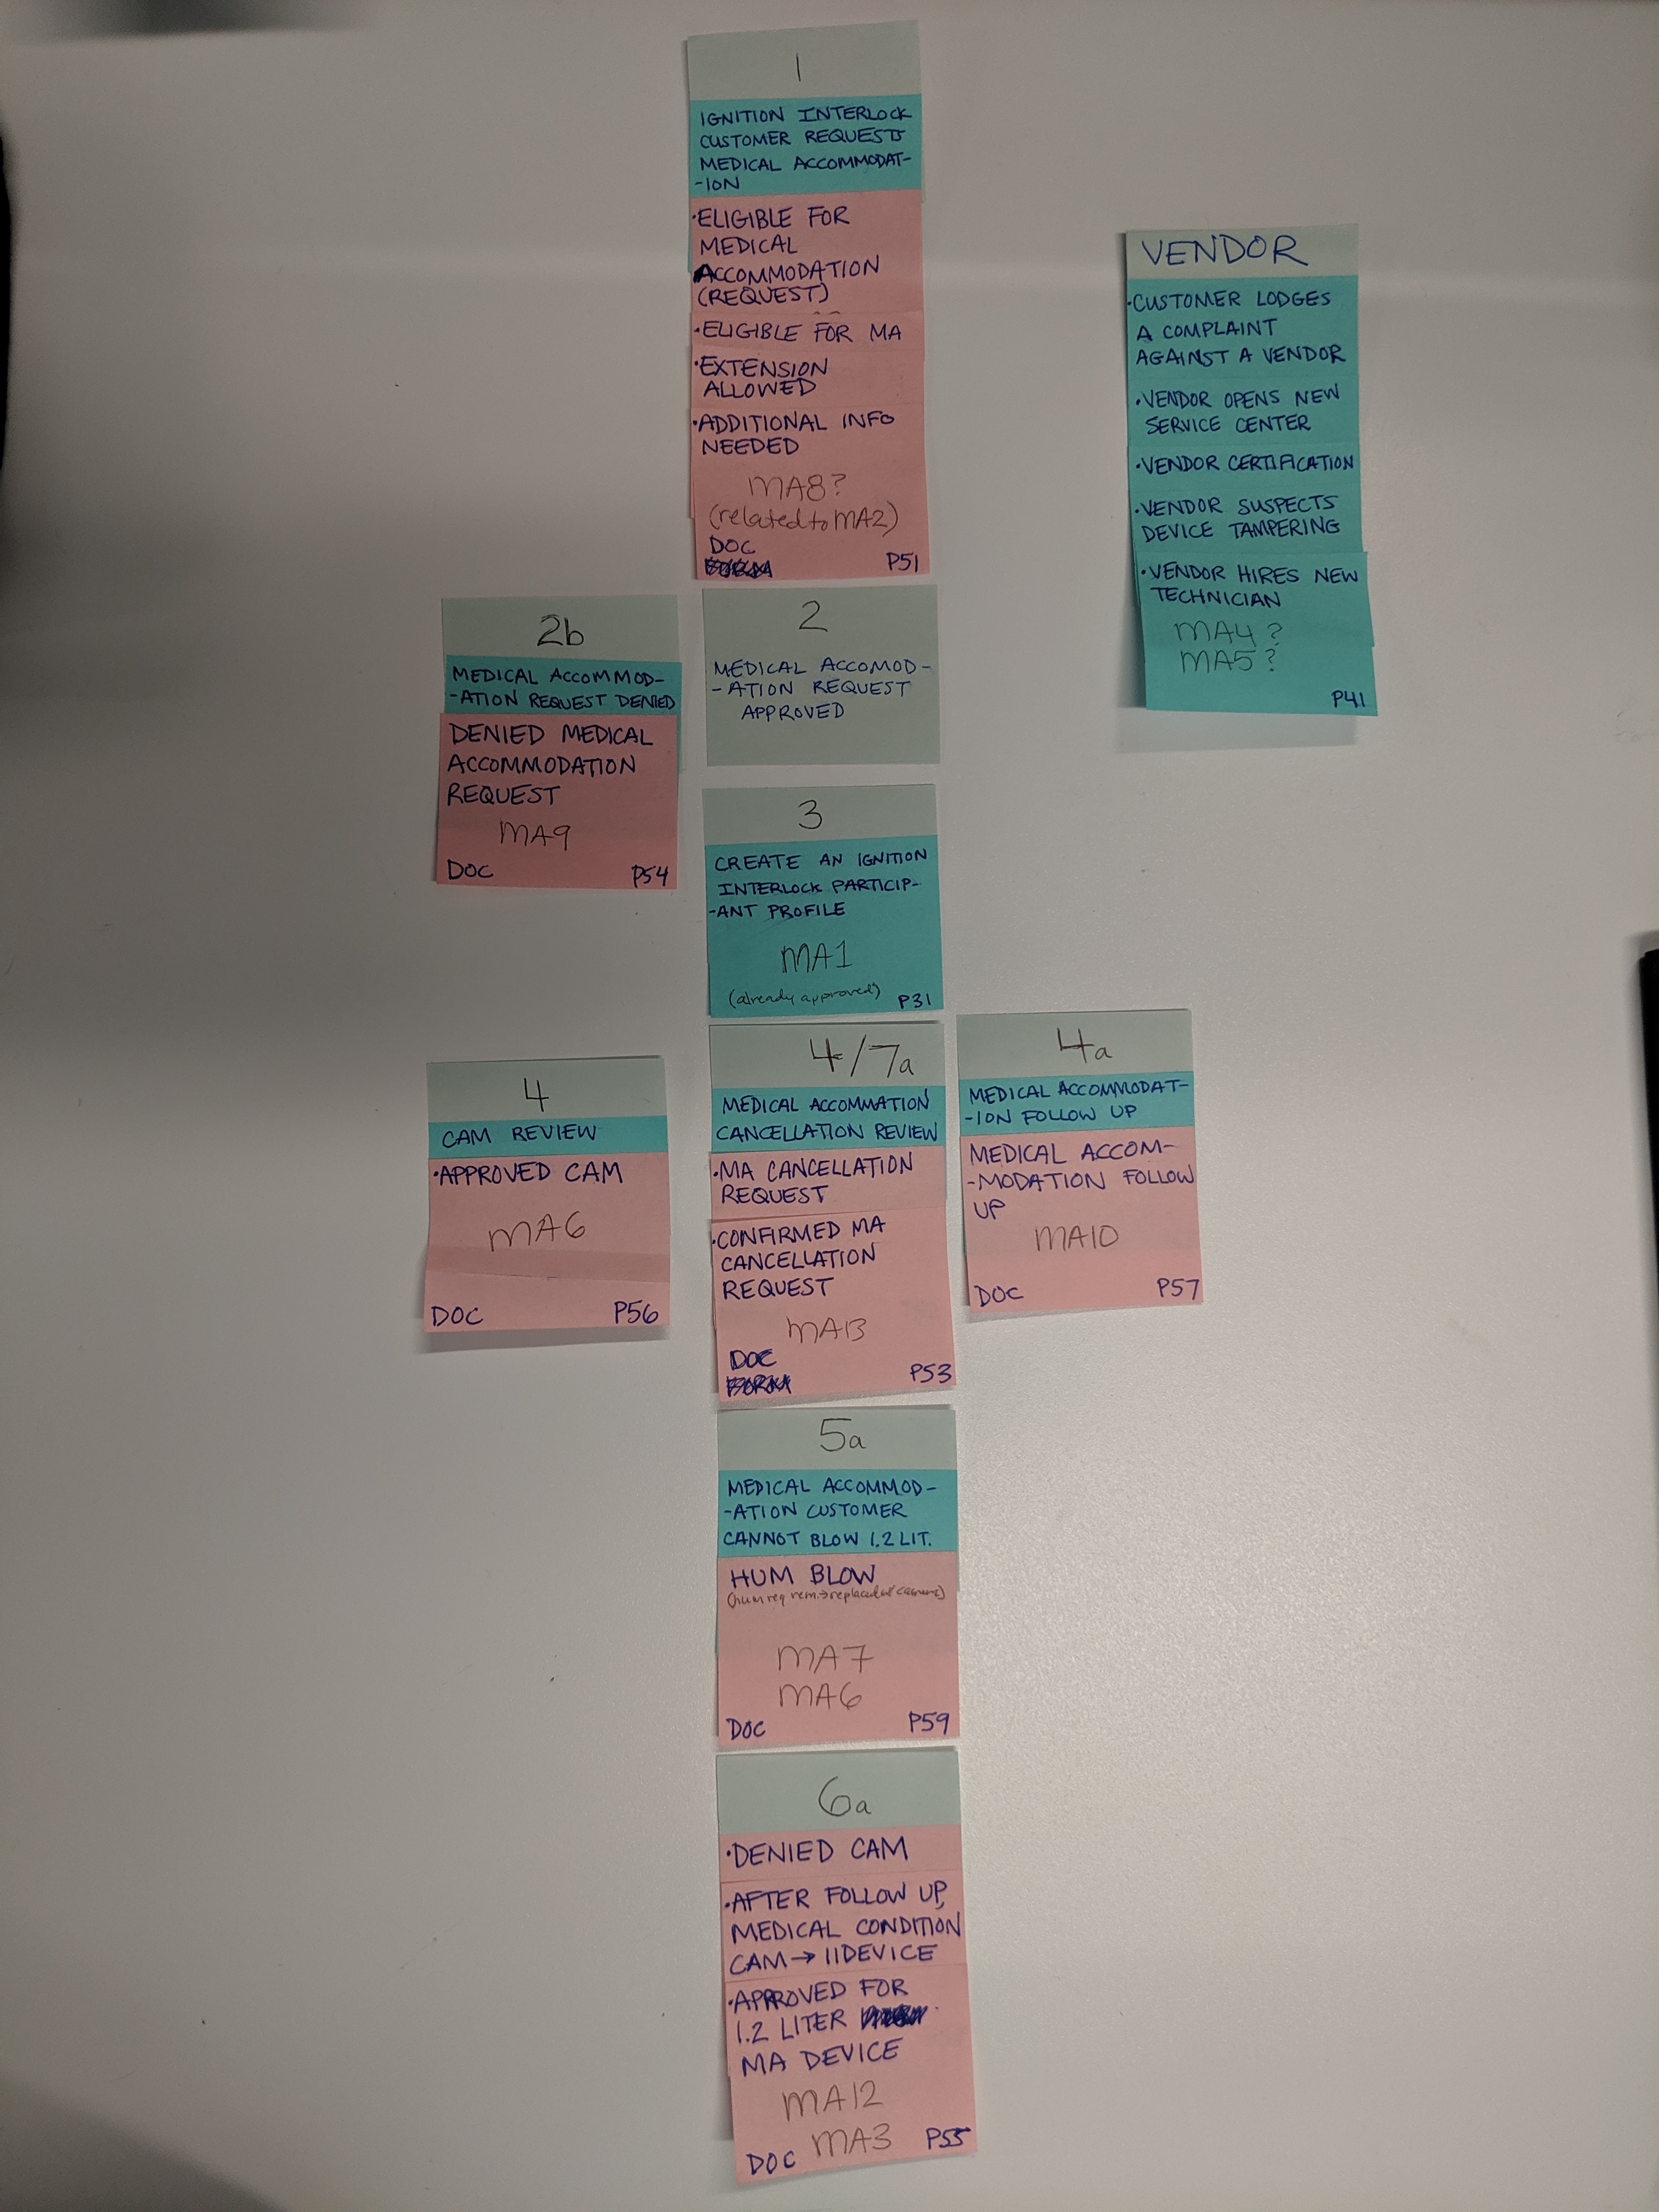 1
IGNITION INTERLOCK
CUSTOMER REQUESTS
MEDICAL ACCOMMODAT-
-ION
·ELIGIBLE FOR
MEDICAL
ACCOMMODATION
(REQUEST)
·ELIGIBLE FOR MA
·EXTENSION
ALLOWED
·ADDITIONAL INFO
NEEDED
MA8?
(related to MA2)
DOC
P51
VENDOR
·CUSTOMER LODGES
A COMPLAINT
AGAINST A VENDOR
·VENDOR OPENS NEW
SERVICE CENTER
·VENDOR CERTIFICATION
·VENDOR SUSPECTS
DEVICE TAMPERING
·VENDOR HIRES NEW
TECHNICIAN
MA4?
MA5?
P41
2b
MEDICAL ACCOMMOD-
-ATION REQUEST DENIED
DENIED MEDICAL
ACCOMMODATION
REQUEST
MA9
DOC P54
2
MEDICAL ACCOMOD-
-ATION REQUEST
APPROVED
3
CREATE AN IGNITION
INTERLOCK PARTICIP-
-ANT PROFILE
MA1
(already approved) P31
4
CAM REVIEW
·APPROVED CAM
MA6
DOC P56
4/7a
MEDICAL ACCOMMATION
CANCELLATION REVIEW
·MA CANCELLATION
REQUEST
·CONFIRMED MA
CANCELLATION
REQUEST
MA13
DOC
P53
4a
MEDICAL ACCOMMODAT-
-ION FOLLOW UP
MEDICAL ACCOM-
-MODATION FOLLOW
UP
MA10
DOC P57
5a
MEDICAL ACCOMMOD-
-ATION CUSTOMER
CANNOT BLOW 1.2 LIT.
HUM BLOW
(hum req rem.→replaced w/ camera)
MA7
MA6
DOC P59
6a
·DENIED CAM
·AFTER FOLLOW UP,
MEDICAL CONDITION
CAM→IIDEVICE
·APPROVED FOR
1.2 LITER
MA DEVICE
MA12
DOC MA3 P55